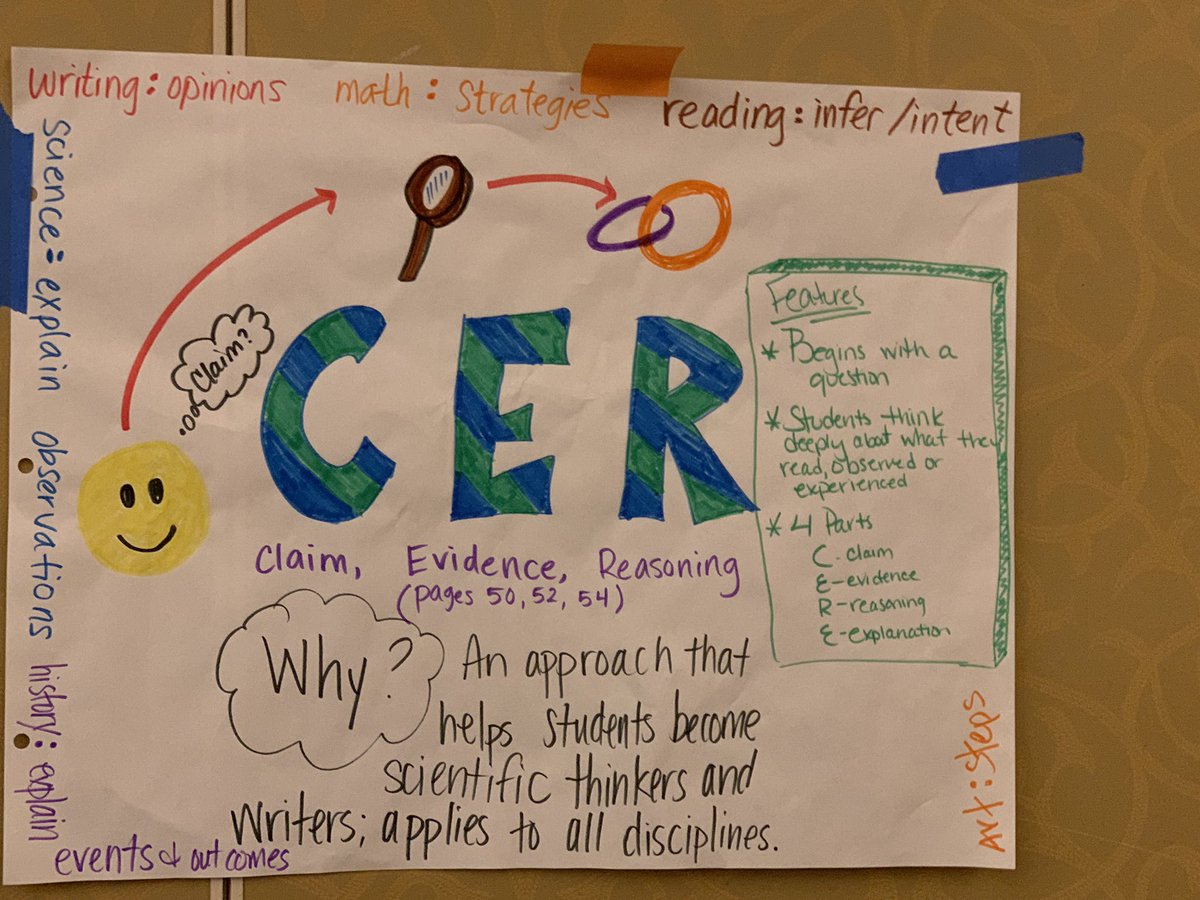 writing: opinions
math: strategies
reading: infer/intent
science: explain observations
history: explain
events & outcomes
Claim?
CER
Claim, Evidence, Reasoning
(pages 50, 52, 54)
Why?
An approach that
helps students become
scientific thinkers and
writers; applies to all disciplines.
Features
* Begins with a
question
* Students think
deeply about what they
read, observed or
experienced
* 4 Parts
C-claim
E-evidence
R-reasoning
E-explanation
Art: Steps